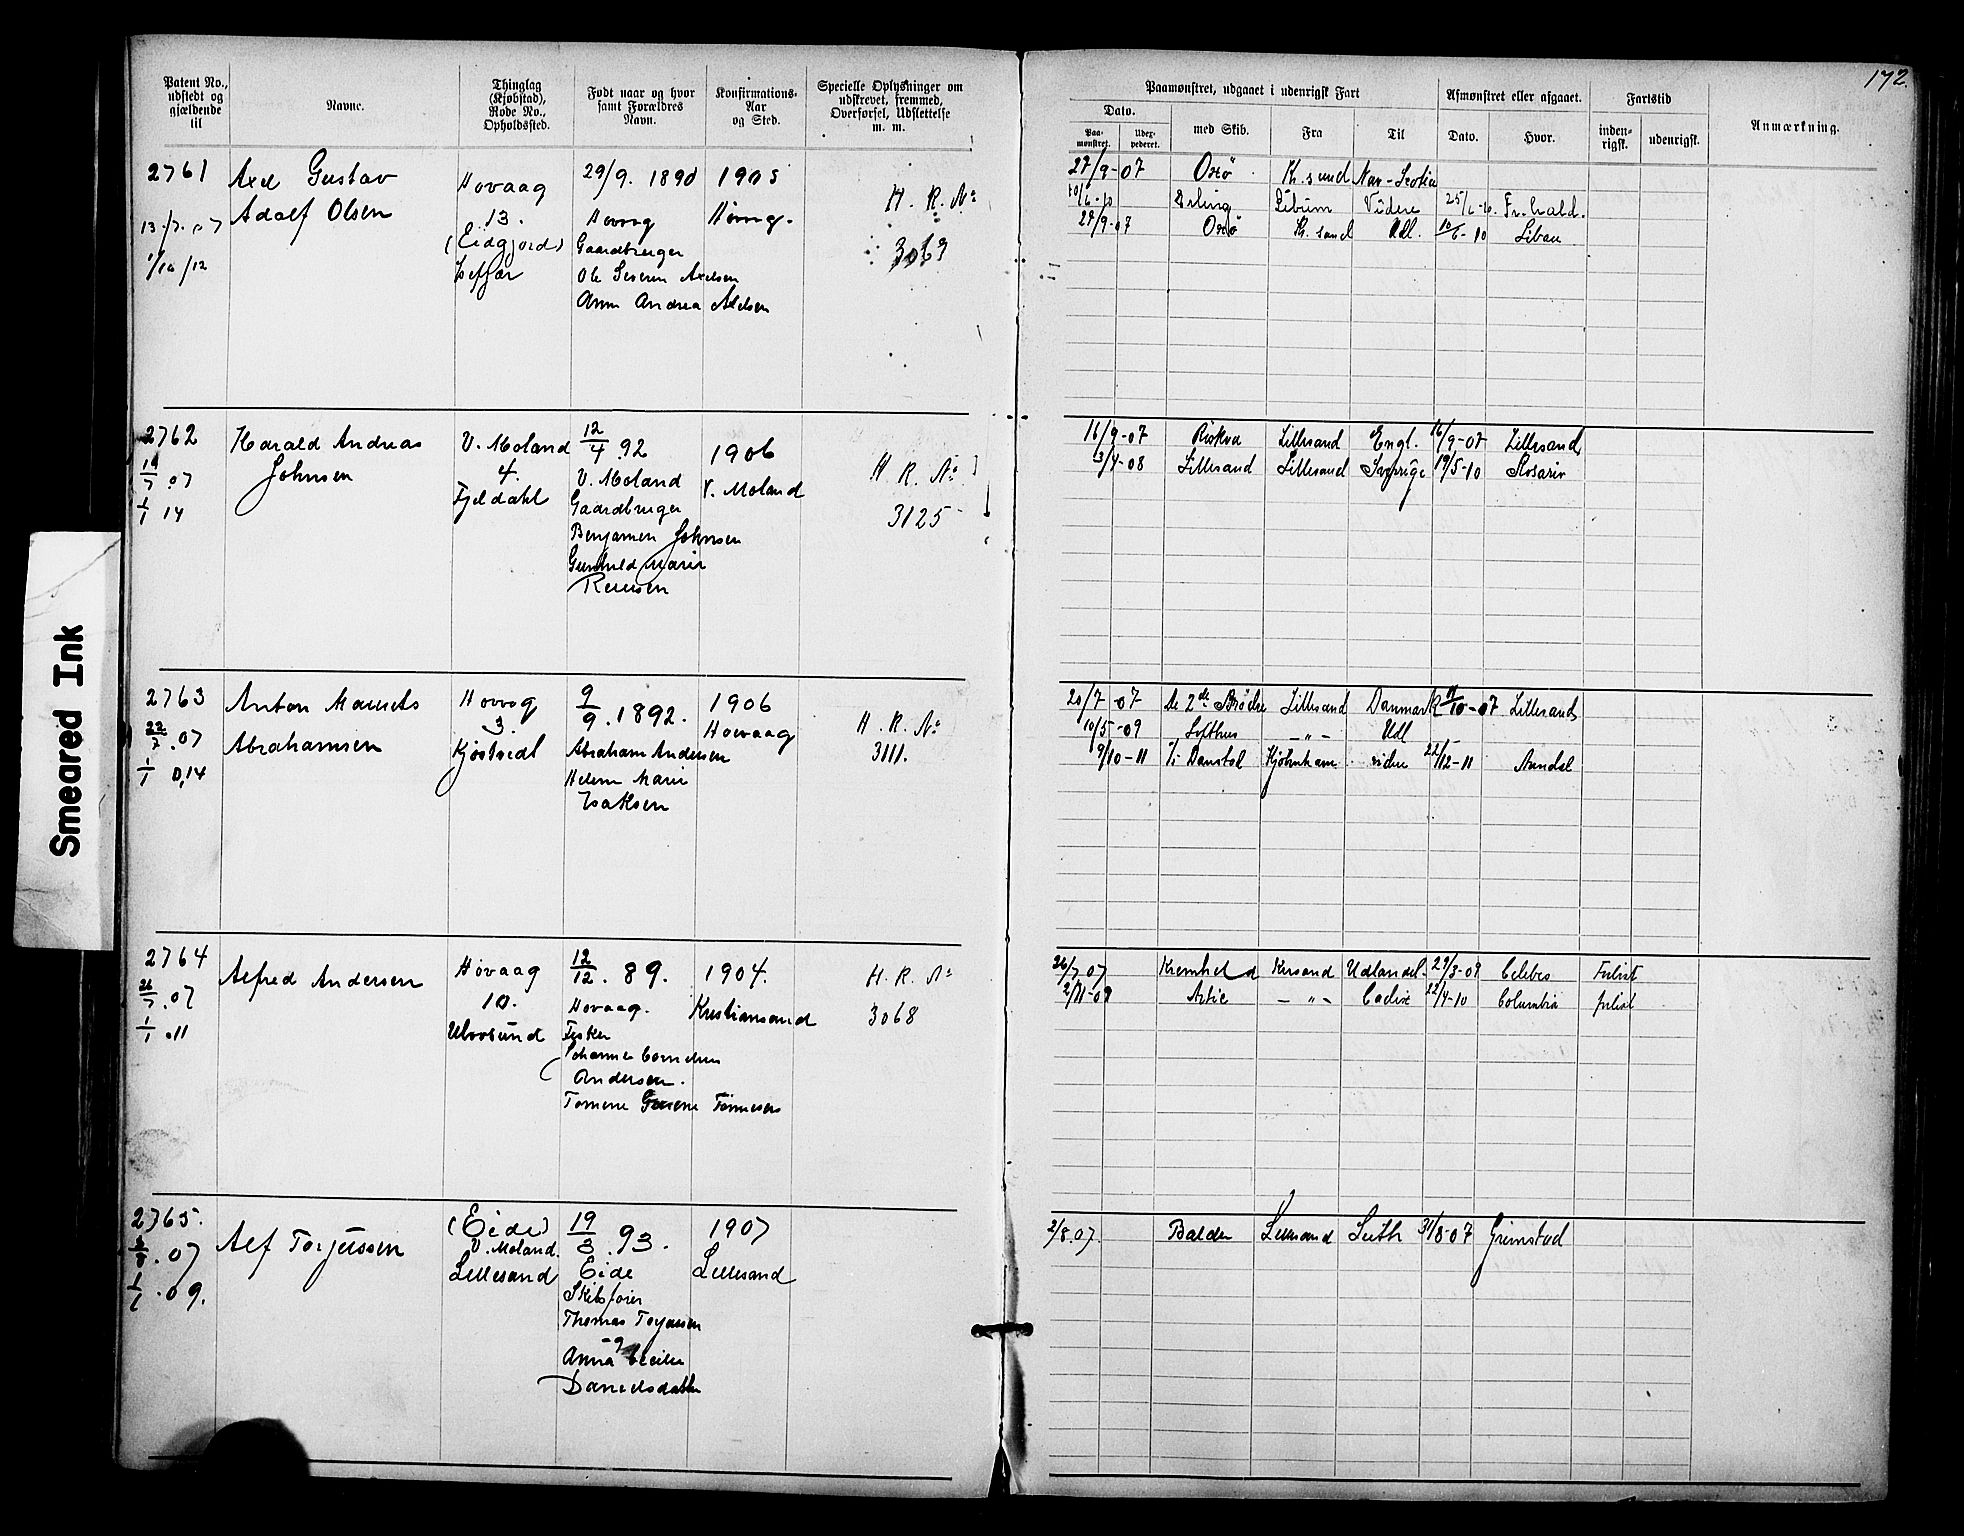 172.
Smeared Ink
Patent No., udstedt og gjældende til
Navne.
Thinglag (Kjøbstad), Rode No., Opholdssted.
Født naar og hvor samt Forældres Navn.
Konfirmations- Aar og Sted.
Specielle Oplysninger om udskrevet, fremmed, Overførsel, Udslettelse m. m.
Paamønstret, udgaaet i udenrigsk Fart
Afmønstret eller afgaaet.
Fartstid
Anmærkning.
Dato.
Paa- mønstret.
Udex- pederet.
med Skib.
Fra
Til
Dato.
Hvor.
inden- rigsk.
udenrigsk.
2761
13/7.07
1/10/12
Axel Gustav
Adolf Olsen
Hovaag
13.
(Eidgjord)
29/9. 1890
Hovag
Gaardbruger
Ole Severin Axelsen
Anna Andrea
1905
H. R. No
3063
27/9-07 Oxø Kr.sand
10/6-10 Erling Libau Videre 25/6-10. Fr.hald.
27/9-07 Oxø Kr. sand Udl. 10/6-10 Libau
2762
19/7.07
1/1 14
Harald Andreas
Johnsen
V. Moland
4.
Fjeldahl
12/4.92
V. Moland
Gaardbruger
Benjamin Johnsen
Gunhild Marie
1906
V. Moland
H. R. No
3125
16/9-07 Lillesand Engl. 16/9-07 Lillesand
3/4-08 Lillesand Lillesand Sverige 19/5-10
2763
22/7.07
1/1 0,14
Anton
Abrahamsen
Hovog
3.
9/9.1892.
Abraham Andersen
Helene Marie
Isaksen
1906
Hovaag
H. R. No
3111.
20/7-07 De 2de Brødre Lillesand Danmark 11/10-07 Lillesand
10/5-09 — " — Udl
9/10-11 Kjøbnhavn videre 22/12-11 Arendal
2764
26/7.07
1/1.11
Alfred Andersen
Høvaag
10.
Ulvøsund
12/12.89.
Hovaag.
Fisker
Johannes Cornelius
Andersen.
1904.
Kristiansand
H. R. No
3068
26/7 07 Krsand Udlandet. 29/3-09 Celebes Forlist
2/11-09 — " — Cadix 22/4-10 Columbia forlist
2765.
2/8.07
1/1.09.
Alf Torjussen
(Eide)
V. Moland.
Lillesand
19/3.93.
Eide
Skibsfører
Thomas Torjussen
og
Anna Cecilie
Danielsdatter
1907
Lillesand
2/8.07 Balder Lillesand Leith 31/8-07 Grimstad